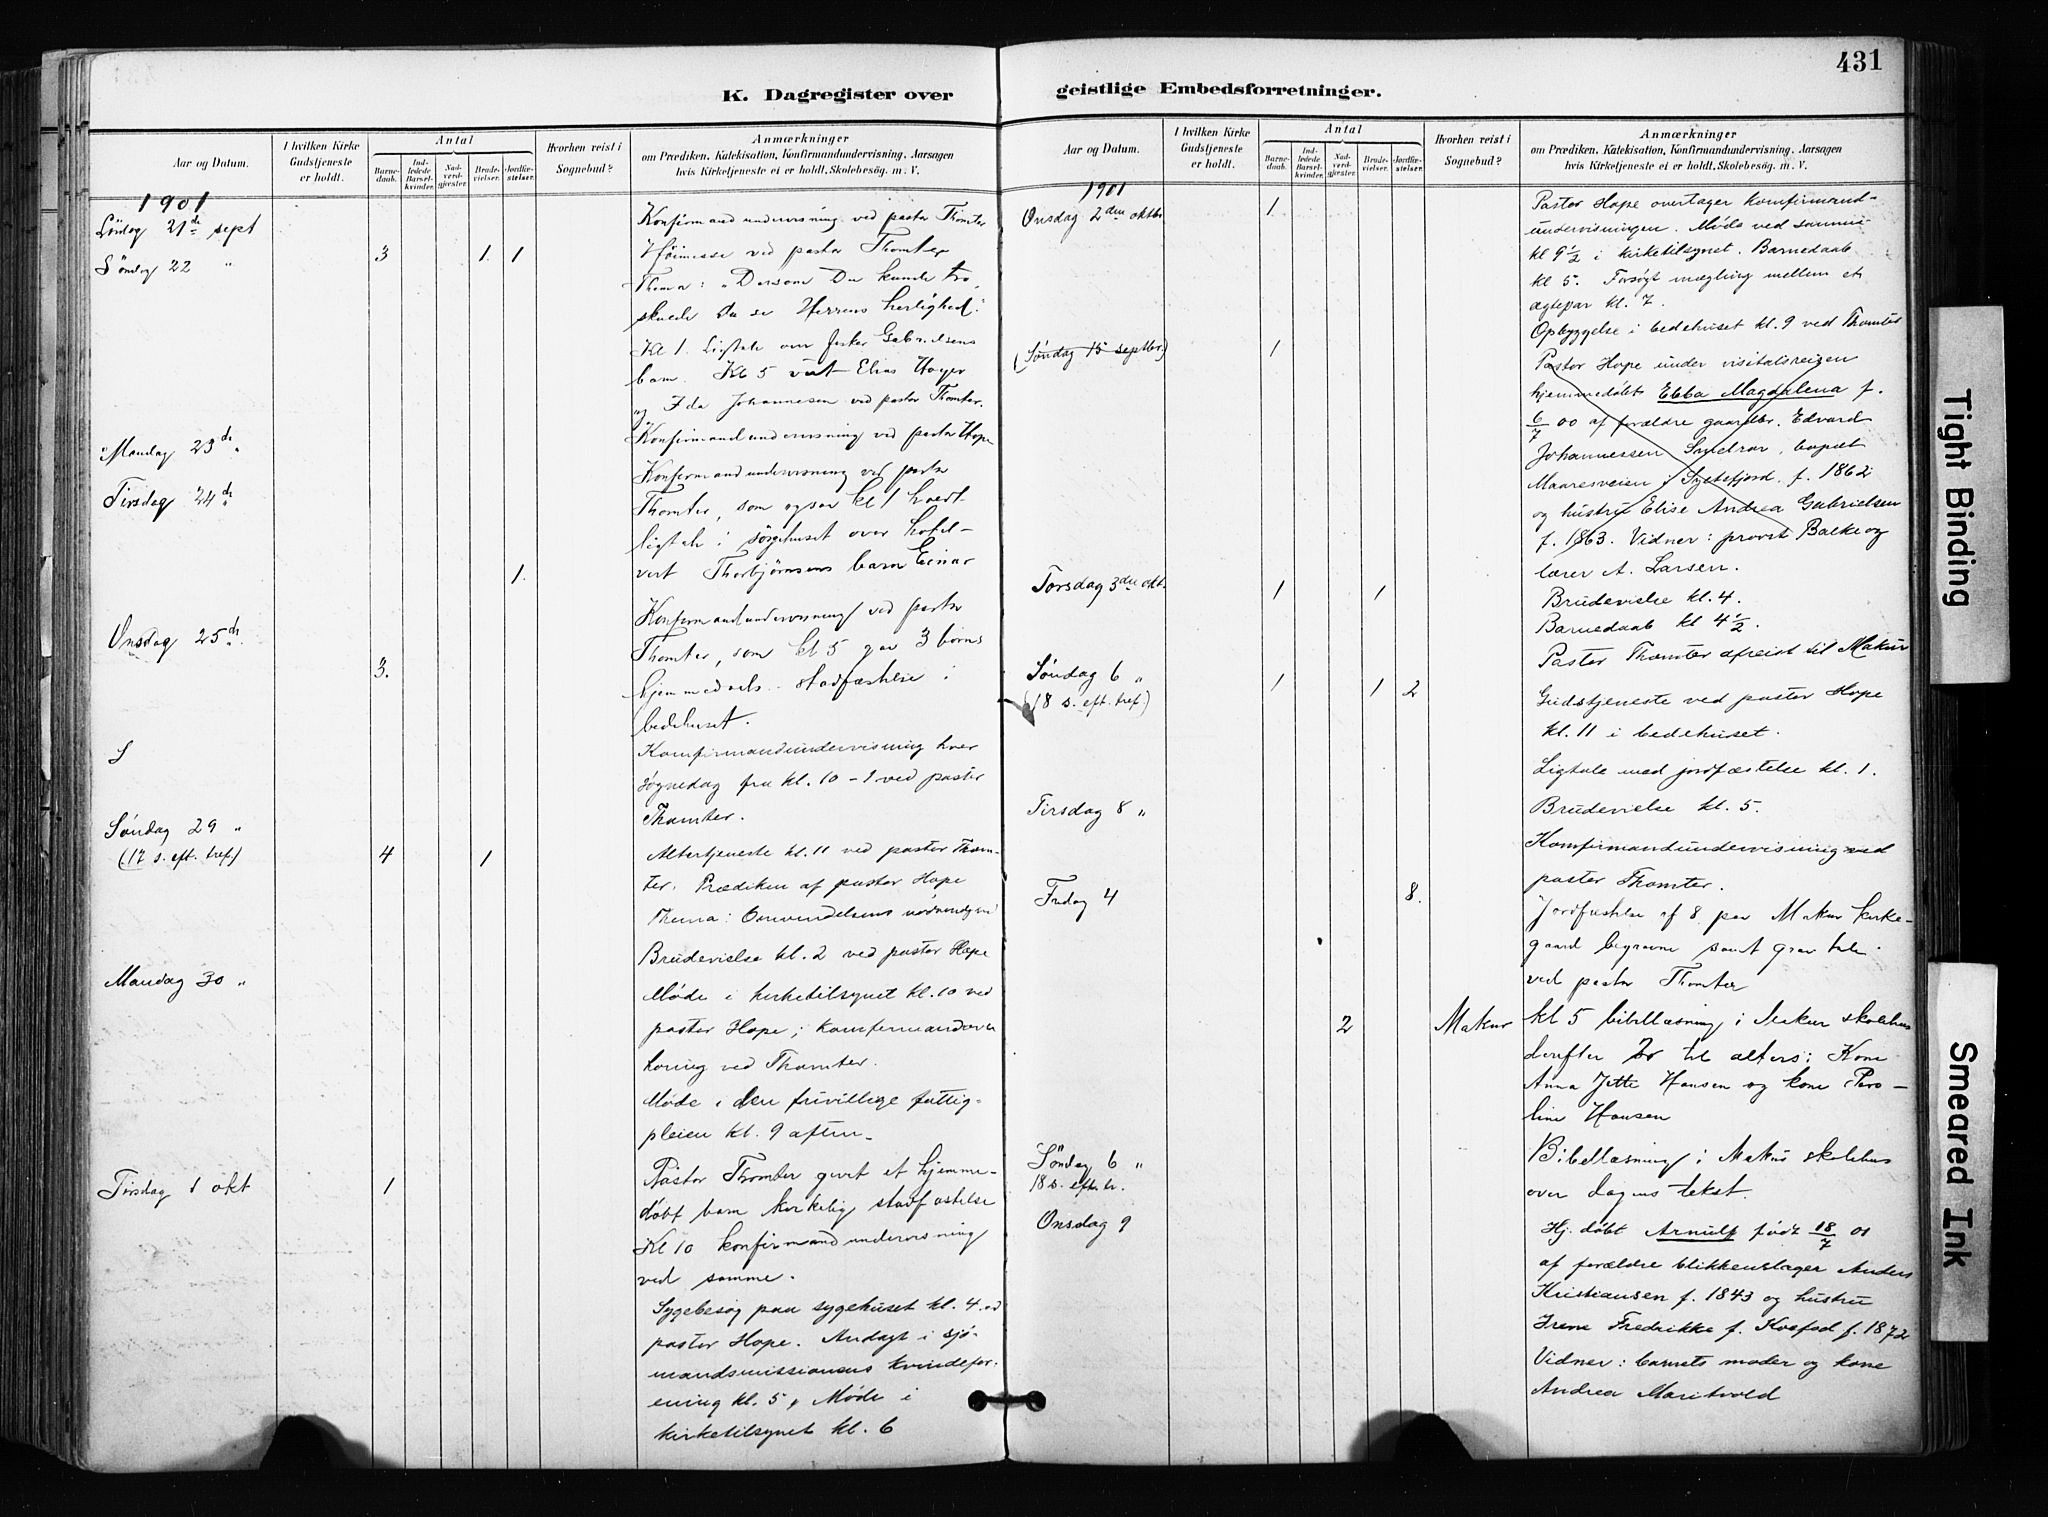 431
K. Dagregister over
geistlige Embedsforretninger.
Aar og Datum.
I hvilken Kirke Gudstjeneste er holdt.
Antal
Barnedaab.
Indledede Barselkvinder.
Nadverdgjester.
Brudevielser.
Jordfæstelser.
Hvorhen reist i Sognebud?
Anmærkninger
om Prædiken, Katekisation, Konfirmandundervisning, Aarsagen
hvis Kirketjeneste ei er holdt, Skolebesøg. m. V.
1901
Lördag 21de sept
Konfirmandundervisning ved pastor Thomter
Söndag 22 "
3 1 1
Høimesse ved pastor Thomter
Thema: "Dersom Du kunde tro,
skulde du se Herrens herlighed."
Kl 1. Ligtale over fisker Gabrielsens
barn. Kl 5 viet Elias Hoyer
og Ida Johannesen ved pastor Thomter.
Mandag 23de "
Konfirmandundervisning ved pastor Hope
Tirsdag 24de "
Konfirmandundervisning ved pastor
Thomter, som ogsaa kl 1 holdt
ligtale i sørgehuset over hotel-
1.
vert Thorbjørnsens barn Einar
Onsdag 25de "
Konfirmandundervisning ved pastor
Thomter, som kl 5 gav 3 børns
3.
hjemmedaab stadfæstelse i
bedehuset.
S
Konfirmandundervisning hver
søgnedag fra kl. 10 - 1 ved pastor
Thomter.
Søndag 29 "
(17 s. eft. tref.)
4 1
Altertjeneste kl. 11 ved pastor Thom-
ter. Prædiken af pastor Hope
Thema: Omvendelsens nødvendighed
Brudevielse kl. 2 ved pastor Hope
Mandag 30 "
Møde i kirketilsynet kl. 10 ved
pastor Hope; konfirmandover
høring ved Thomter.
Møde i den frivillige fattig-
pleien kl. 9 aften
Tirsdag 1 okt
1
Pastor Thomter givet et hjemme-
døbt barn kirkelig stadfæstelse
Kl 10 konfirmandundervisning
ved samme.
Sygebesøg paa sygehuset kl. 4 ved
pastor Hope. Andagt i sjø-
mandsmissionens kvindefor-
ening kl. 5, Møde i
kirketilsynet kl. 6
Aar og Datum.
I hvilken Kirke Gudstjeneste er holdt.
Antal
Barnedaab.
Indledede Barselkvinder.
Nadverdgjester.
Brudevielser.
Jordfæstelser.
Hvorhen reist i Sognebud?
Anmærkninger
om Prædiken, Katekisation, Konfirmandundervisning, Aarsagen
hvis Kirketjeneste ei er holdt, Skolebesøg. m. V.
1901
Onsdag 2den oktbr.
1
Pastor Hope overtager konfirmand-
undervisningen. Møde ved samme
kl 9½ i kirketilsynet. Barnedaab
kl 5. Forsøgt mægling mellem et
ægtepar kl. 7.
Opbyggelse i bedehuset kl. 9 ved Thomter
(Søndag 15 septbr.)
1
Pastor Hope under visitatsreisen
hjemmedøbt Ebba Magdalena f.
6/7 00 af forældre gaardbr. Edvard
Johannessen, bopæl
i Syltefjord, f. 1862
og hustru Elise Andrea Gabrielsen
f. 1863. Vidner: provst Balke og
lærer A. Larsen.
Torsdag 3die okt.
1 1
Brudevielse kl. 4.
Barnedaab kl 4½.
Pastor Thomter afreist til Makur
Søndag 6 "
(18 s. eft. tref.)
1 1 2
Gudstjeneste ved pastor Hope
kl. 11 i bedehuset.
Ligtale med jordfæstelse kl. 1.
Brudevielse kl. 5.
Tirsdag 8 "
Konfirmandundervisning ved
pastor Thomter.
Fredag 4
8.
Jordfæstelse af 8 paa Makur kirke-
gaard begravne samt gravtale
ved pastor Thomter
2 Makur
kl 5 bibellæsning i Makur skolehus
derefter 2 til alters: Kone
Anna Jette Hansen og kone Paro-
line Hansen
Söndag 6 "
18 s. eft. tr.
Bibellæsning i Makur skolehus
over dagens tekst.
Onsdag 9
Hj. døbt Arnulf født 18/7 01
af forældre blikkenslager Anders
Kristiansen f. 1843 og hustru
Irene Fredrikke f. Kvefod f. 1872
Vidner: barnets moder og kone
Andrea Maritvold
Tight Binding
Smeared Ink